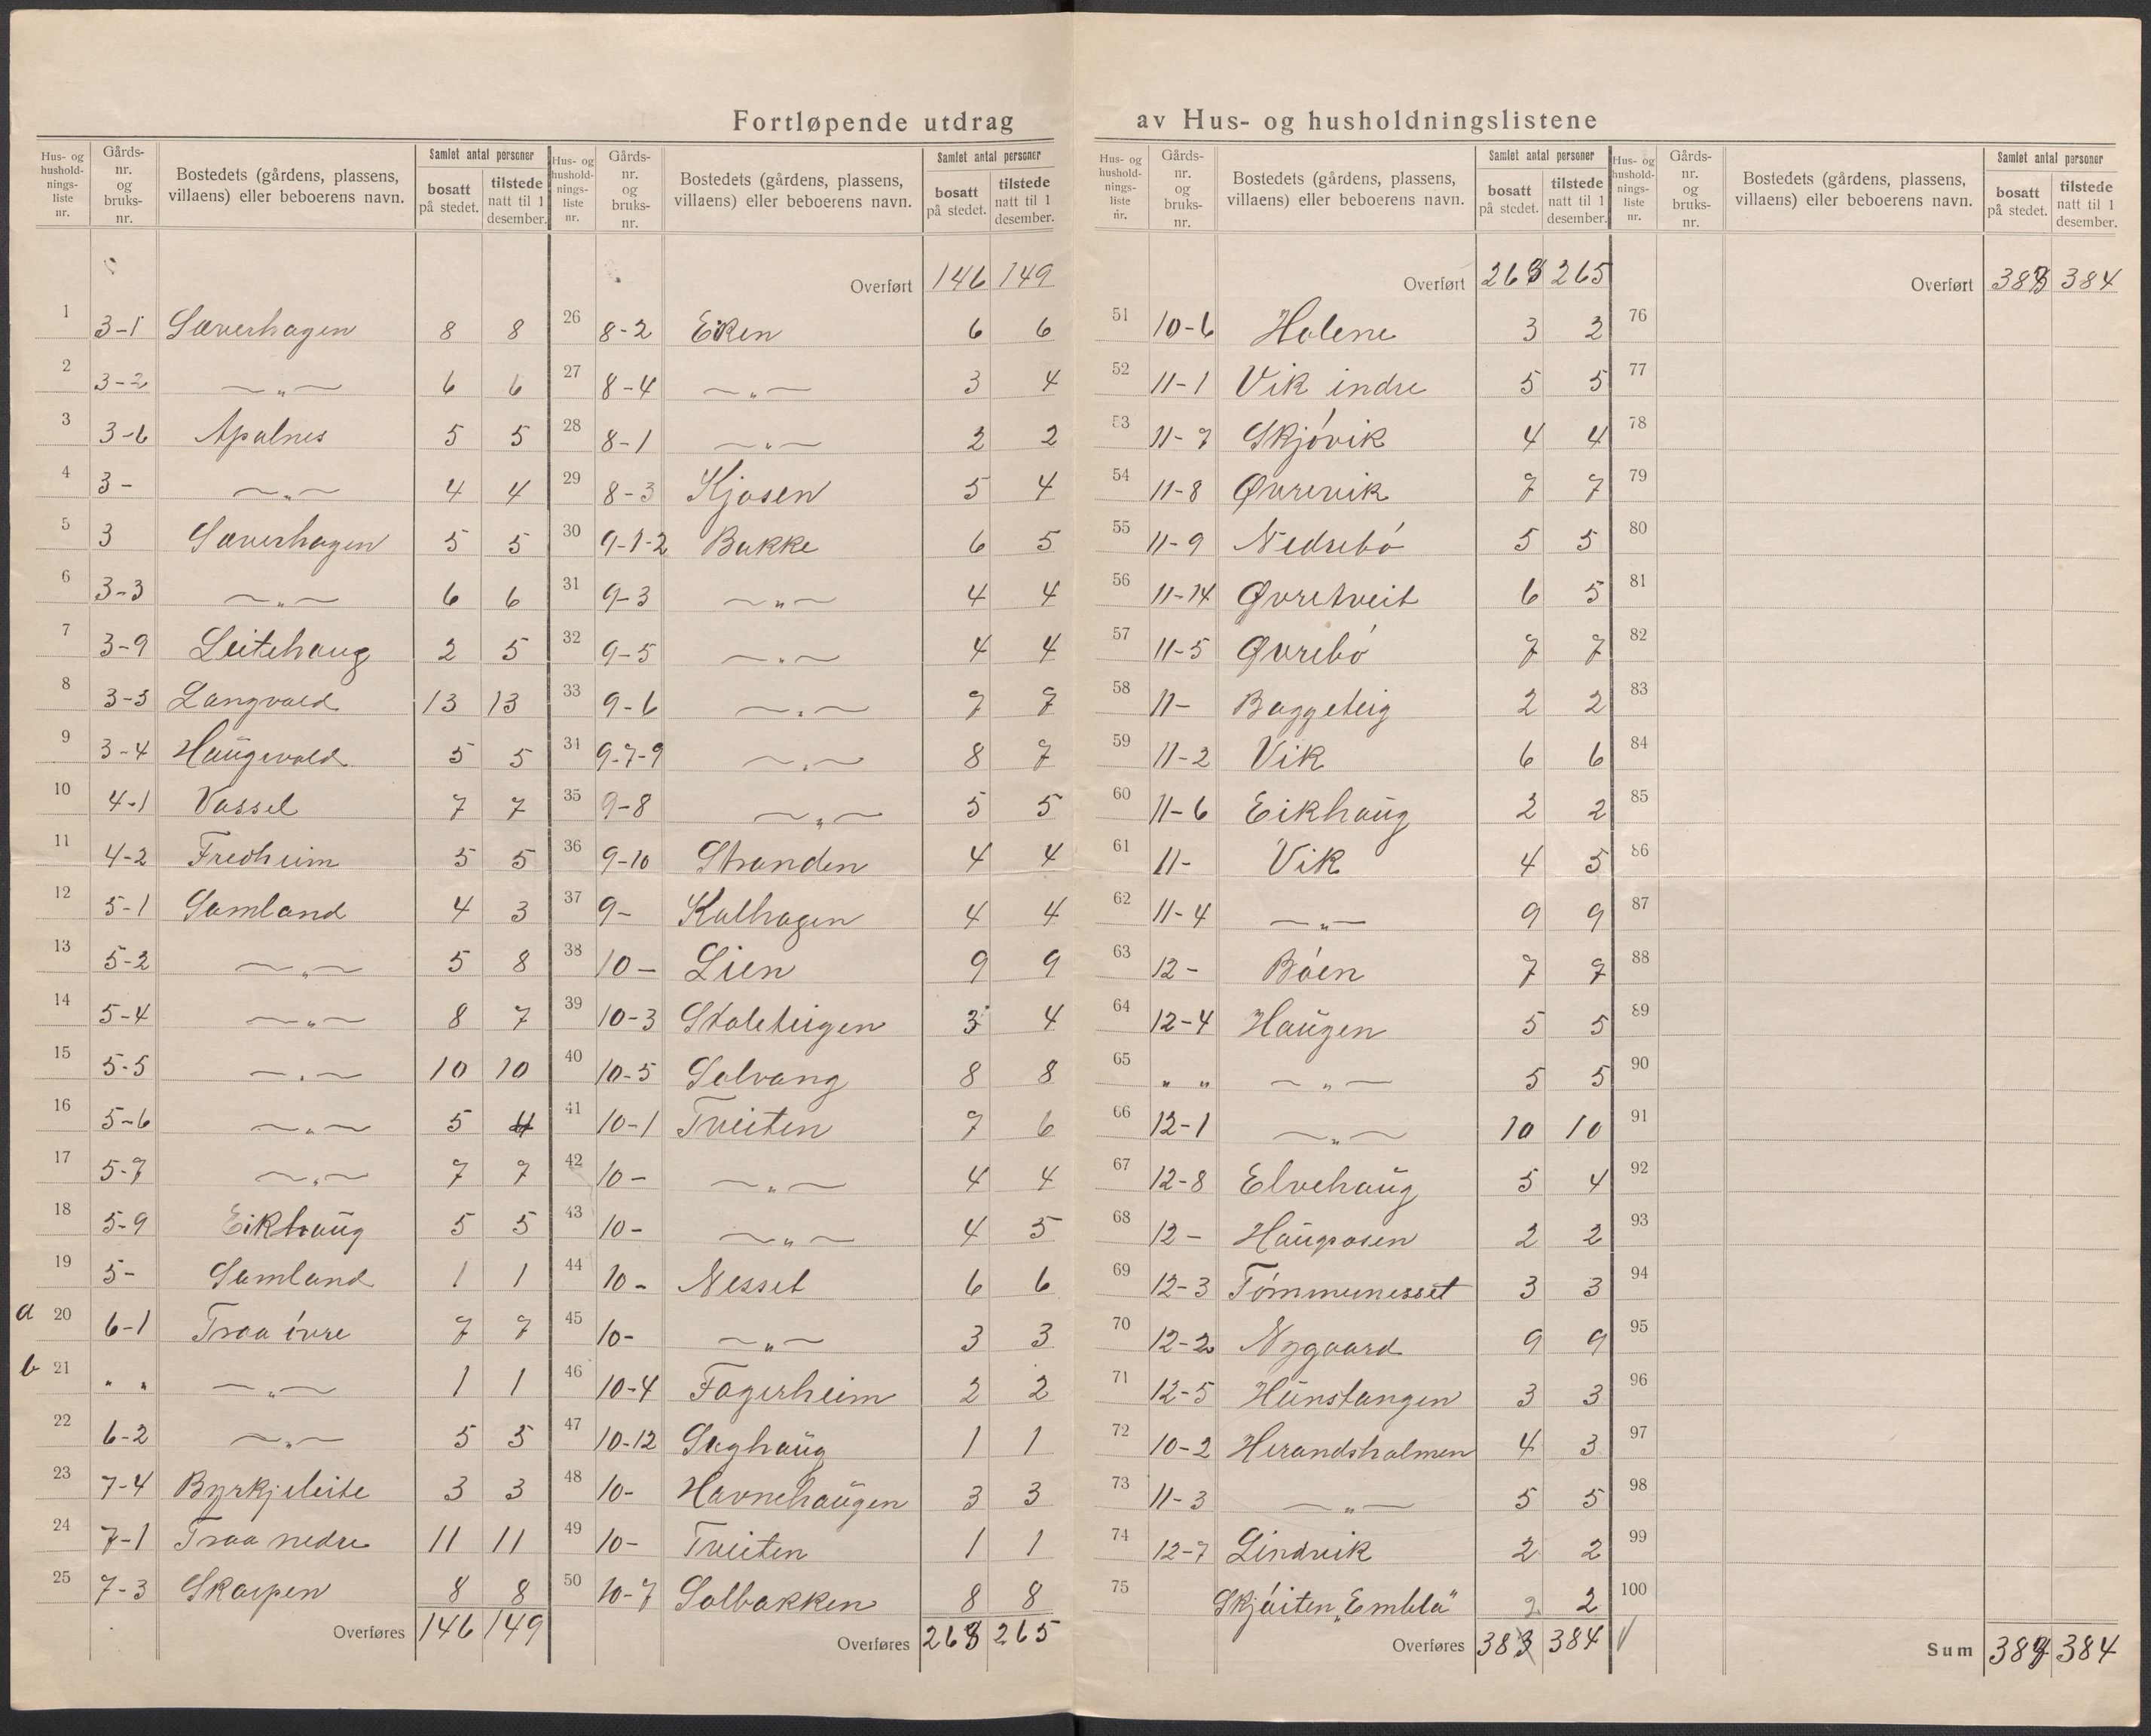 Fortløpende utdrag av Hus- og husholdningslistene
Hus- og hushold-nings-liste nr. Gårds-nr. og bruks-nr. Bostedets (gårdens, plassens, villaens) eller beboerens navn. Samlet antal personer bosatt på stedet. tilstede natt til 1 desember.
1 3-1 Sæverhagen 8 8
2 3-2 —„— 6 6
3 3-6 Apalnes 5 5
4 3- —„— 4 4
5 3 Sæverhagen 5 5
6 3-3 —„— 6 6
7 3-9 Leitehaug 2 5
8 3-5 Langvald 13 13
9 3-4 Haugevold 5 5
10 4-1 Vassel 7 7
11 4-2 Fredheim 5 5
12 5-1 Samland 4 3
13 5-2 —„— 5 8
14 5-4 —„— 8 7
15 5-5 —„— 10 10
16 5-6 —„— 5 4
17 5-7 —„— 7 7
18 5-9 Eikhaug 5 5
19 5- Samland 1 1
a 20 6-1 Traa övre 7 7
b 21 „ „ —„— 1 1
22 6-2 —„— 5 5
23 7-4 Byrkjeleite 3 3
24 7-1 Traa nedre 11 11
25 7-3 Skarpen 8 8
Overføres 146 149
Hus- og hushold-nings-liste nr. Gårds-nr. og bruks-nr. Bostedets (gårdens, plassens, villaens) eller beboerens navn. Samlet antal personer bosatt på stedet. tilstede natt til 1 desember.
Overført 146 149
26 8-2 Eiken 6 6
27 8-4 —„— 3 4
28 8-1 —„— 2 2
29 8-3 Kjosen 5 4
30 9-1-2 Bakke 6 5
31 9-3 —„— 4 4
32 9-5 —„— 4 4
33 9-6 —„— 7 7
34 9-7-9 —„— 8 7
35 9-8 —„— 5 5
36 9-10 Stranden 4 4
37 9- Kalhagen 4 4
38 10- Lien 9 9
39 10-3 Staleteigen 3 4
40 10-5 Solvang 8 8
41 10-1 Tveiten 7 6
42 10- —„— 4 4
43 10- —„— 4 5
44 10- Nesset 6 6
45 10- —„— 3 3
46 10-4 Fagerheim 2 2
47 10-12 Saghaug 1 1
48 10- Havnehaugen 3 3
49 10- Tveiten 1 1
50 10-7 Solbakken 8 8
Overføres 268 265
Hus- og hushold-nings-liste nr. Gårds-nr. og bruks-nr. Bostedets (gårdens, plassens, villaens) eller beboerens navn. Samlet antal personer bosatt på stedet. tilstede natt til 1 desember.
Overført 263 265
51 10-6 Holene 3 2
52 11-1 Vik indre 5 5
53 11-7 Skjövik 4 4
54 11-8 Øvrevik 7 7
55 11-9 Nedrebö 5 5
56 11-14 Øvretveit 6 5
57 11-5 Øvrebö 7 7
58 11- Baggeteig 2 2
59 11-2 Vik 6 6
60 11-6 Eikhaug 2 2
61 11- Vik 4 5
62 11-4 —„— 9 9
63 12- Böen 7 7
64 12-4 Haugen 5 5
65 „ „ —„— 5 5
66 12-1 —„— 10 10
67 12-8 Elvehaug 5 4
68 12- Haugåsen 2 2
69 12-3 Tömmernesset 3 3
70 12-2 Nygaard 9 9
71 12-5 Hunstangen 3 3
72 10-2 Herandsholmen 4 3
73 11-3 —„— 5 5
74 12-7 Lindvik 2 2
75 Skjöiten „Embla" 2 2
Overføres 383 384
Hus- og hushold-nings-liste nr. Gårds-nr. og bruks-nr. Bostedets (gårdens, plassens, villaens) eller beboerens navn. Samlet antal personer bosatt på stedet. tilstede natt til 1 desember.
Overført 387 384
76
77
78
79
80
81
82
83
84
85
86
87
88
89
90
91
92
93
94
95
96
97
98
99
100
Sum 387 384